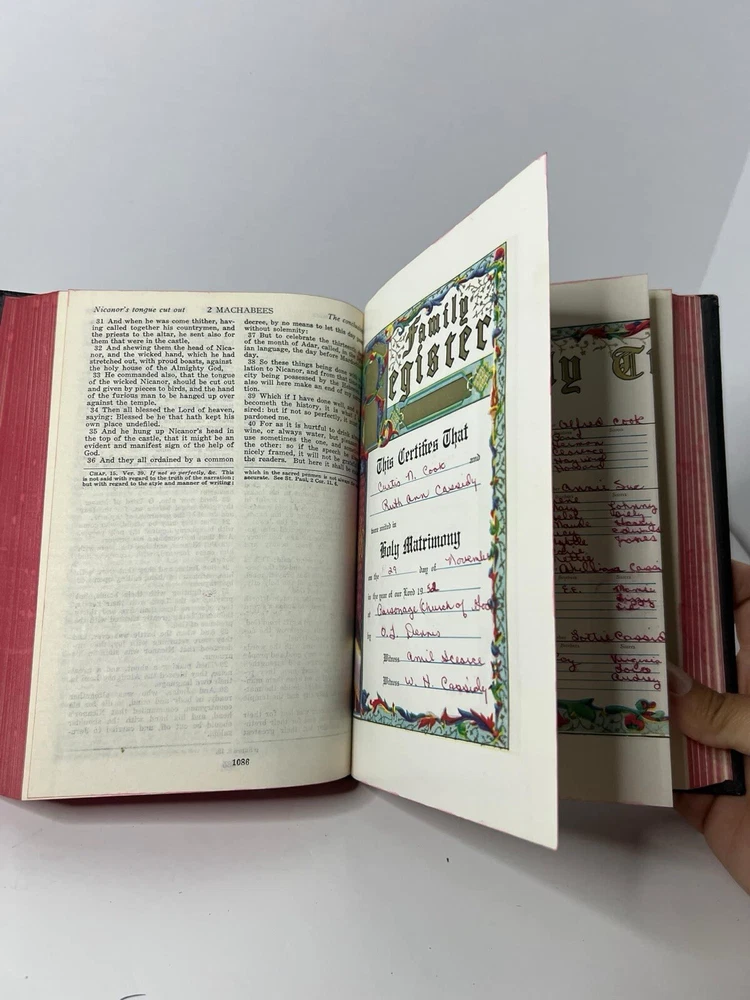 Nicanor's tongue cut out
2 MACHABEES
31 And when he was come thither, hav-
ing called together his countrymen, and
the priests to the altar, he sent also for
them that were in the castle,
32 And shewing them the head of Nica-
nor, and the wicked hand, which he had
stretched out, with proud boasts, against
the holy house of the Almighty God,
33 He commanded also, that the tongue
of the wicked Nicanor, should be cut out
and given by pieces to birds, and the hand
of the furious man to be hanged up over
against the temple.
34 Then all blessed the Lord of heaven,
saying: Blessed be he that hath kept his
own place undefiled.
35 And he hung up Nicanor's head in
the top of the castle, that it might be an
evident and manifest sign of the help of
God.
36 And they all ordained by a common
CHAP. 15. Ver. 39. If not so perfectly, &c. This
is not said with regard to the truth of the narration;
but with regard to the style and manner of writing:
The
decree, by no means to let this day
without solemnity:
37 But to celebrate the
of the month of Adar, called, in the
ian language, the day before
day.
38 So these things being done with
lation to Nicanor, and from that
city being possessed by the
also will here make an end of my
tion.
39 Which if I have done well, and
becometh the history, it is what I
sired: but if not so perfectly, it
pardoned me.
40 For as it is hurtful to drink
wine, or always water, but
use sometimes the one, and
the other: so if the speech be
nicely framed, it will not be
the readers. But here it shall be
which in the sacred penmen is not always
accurate. See St. Paul, 2 Cor. 11. 6
1086
Family
Register
This Certifies That
Curtis N. Cook and
Ruth Ann Cassidy
were united in
Holy Matrimony
on the 29 day of November
in the year of our Lord 1952
at Parsonage Church of
by O. L. Dennis
Witness
Witness W. H. Cassidy
y T
Alfred Cook
Annie Sue
Johnny
Billy
Cassi
Lottie Cassid
Virginia
Lois
Audrey